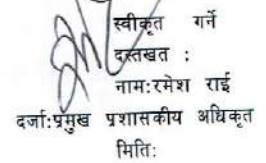 स्वीकृत गर्ने
दस्तखत :
नाम:रमेश राई
दर्जा:प्रमुख प्रशासकीय अधिकृत
मिति: